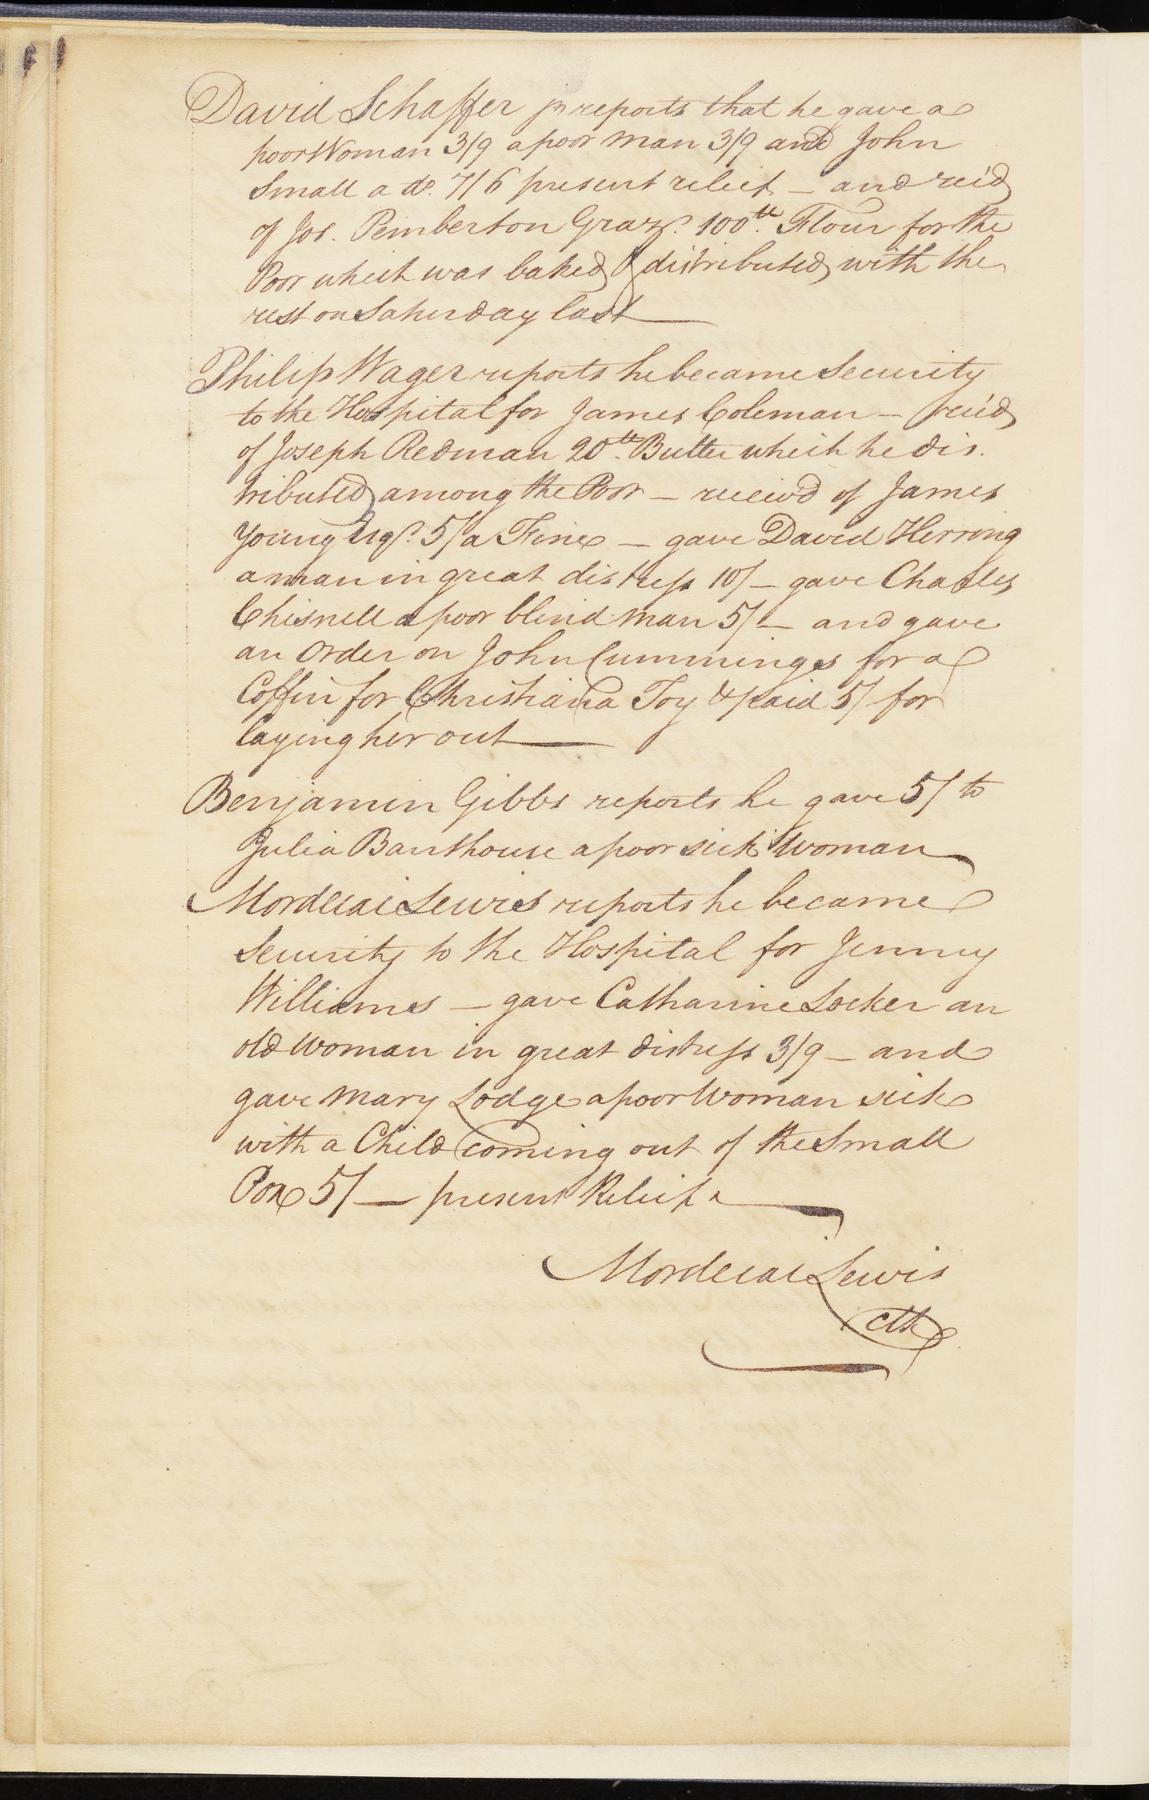 David Schaffer jr reports that he gave a
poor Woman 3/9 a poor man 3/9 and John
Small a do. 7/6 present relief — and rec'd
of Jos. Pemberton 100 lb. Flour for the
Poor which was baked & distributed with the
rest on Saturday last
Philip Wager reports he became Security
to the Hospital for James Coleman — rec'd
of Joseph Redman 20 lb. Butter which he dis.
tributed among the Poor — receiv'd of James
Young Esqr. 5/ a Fine — gave David Herring
a man in great distress 10/ — gave Charles
Chisnell a poor blind man 5/ — and gave
an Order on John Cummings for a
Coffin for Christiana Toy & paid 5/ for
laying her out
Benjamin Gibbs reports he gave 5/ to
Julia Banthouse a poor sick Woman
Mordecai Lewis reports he became
Security to the Hospital for Jenny
Williams — gave Catharine Locker an
old woman in great distress 3/9 — and
gave Mary Lodge a poor Woman sick
with a Child coming out of the Small
Pox 5/ — present Relief
Mordecai Lewis
Clk